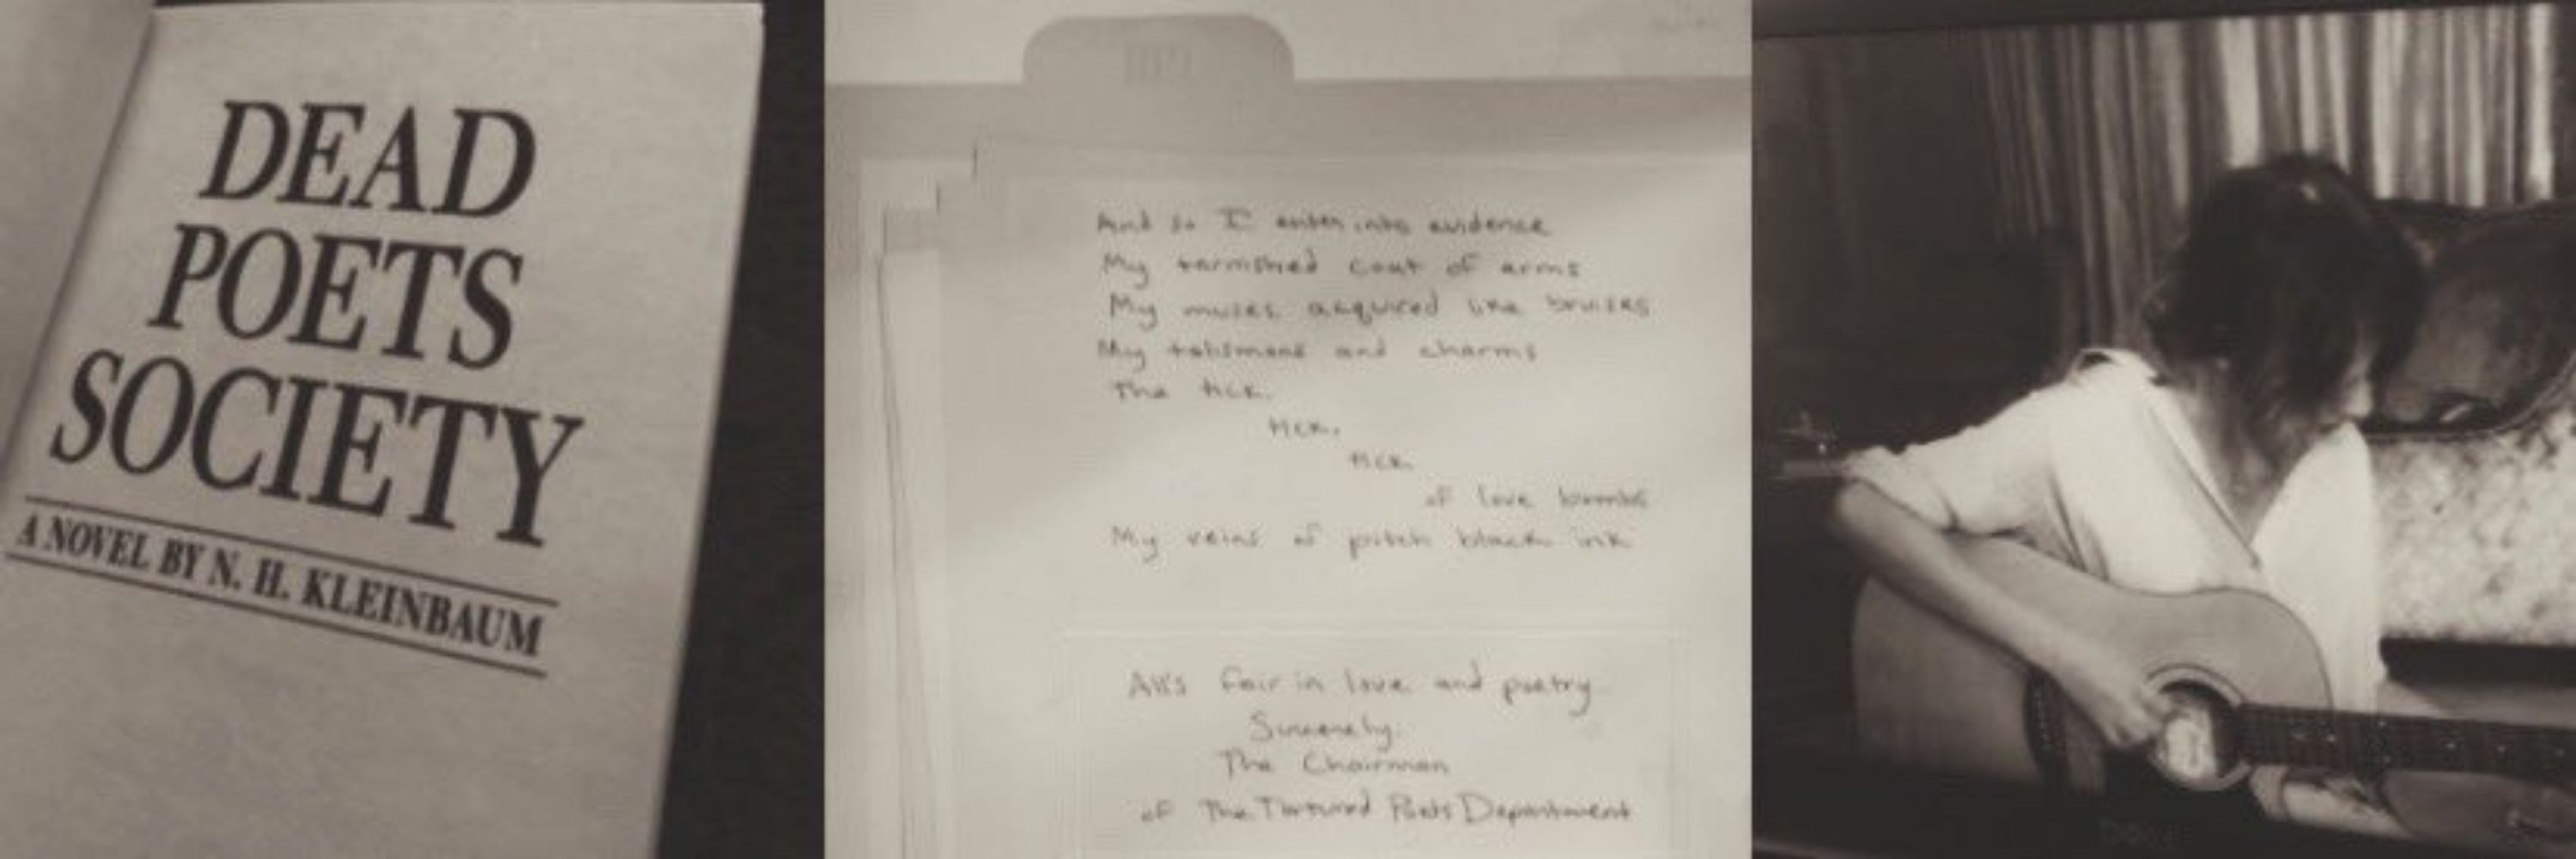 DEAD
POETS
SOCIETY
A NOVEL BY N. H. KLEINBAUM
And so I enter into evidence
My tarnished coat of arms
My muses acquired like bruises
My talismans and charms
The tick.
tick.
tick.
of love bombs
My veins of pitch black ink
All's fair in love and poetry
Sincerely,
The Chairman
of The Tortured Poets Department